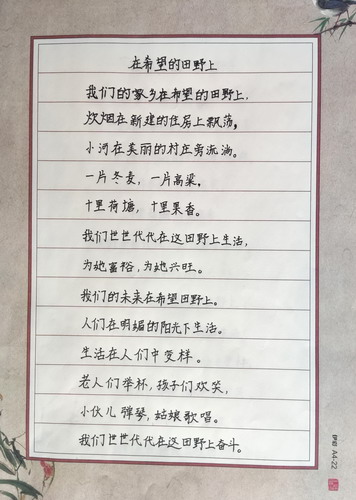 在希望的田野上
我们的家乡在希望的田野上,
炊烟在新建的住房上飘荡,
小河在美丽的村庄旁流淌。
一片冬麦,一片高粱,
十里荷塘,十里果香。
我们世世代代在这田野上生活,
为她富裕,为她兴旺。
我们的未来在希望田野上。
人们在明媚的阳光下生活。
生活在人们中变样。
老人们举杯,孩子们欢笑,
小伙儿弹琴,姑娘歌唱。
我们世世代代在这田野上奋斗。
A4-22